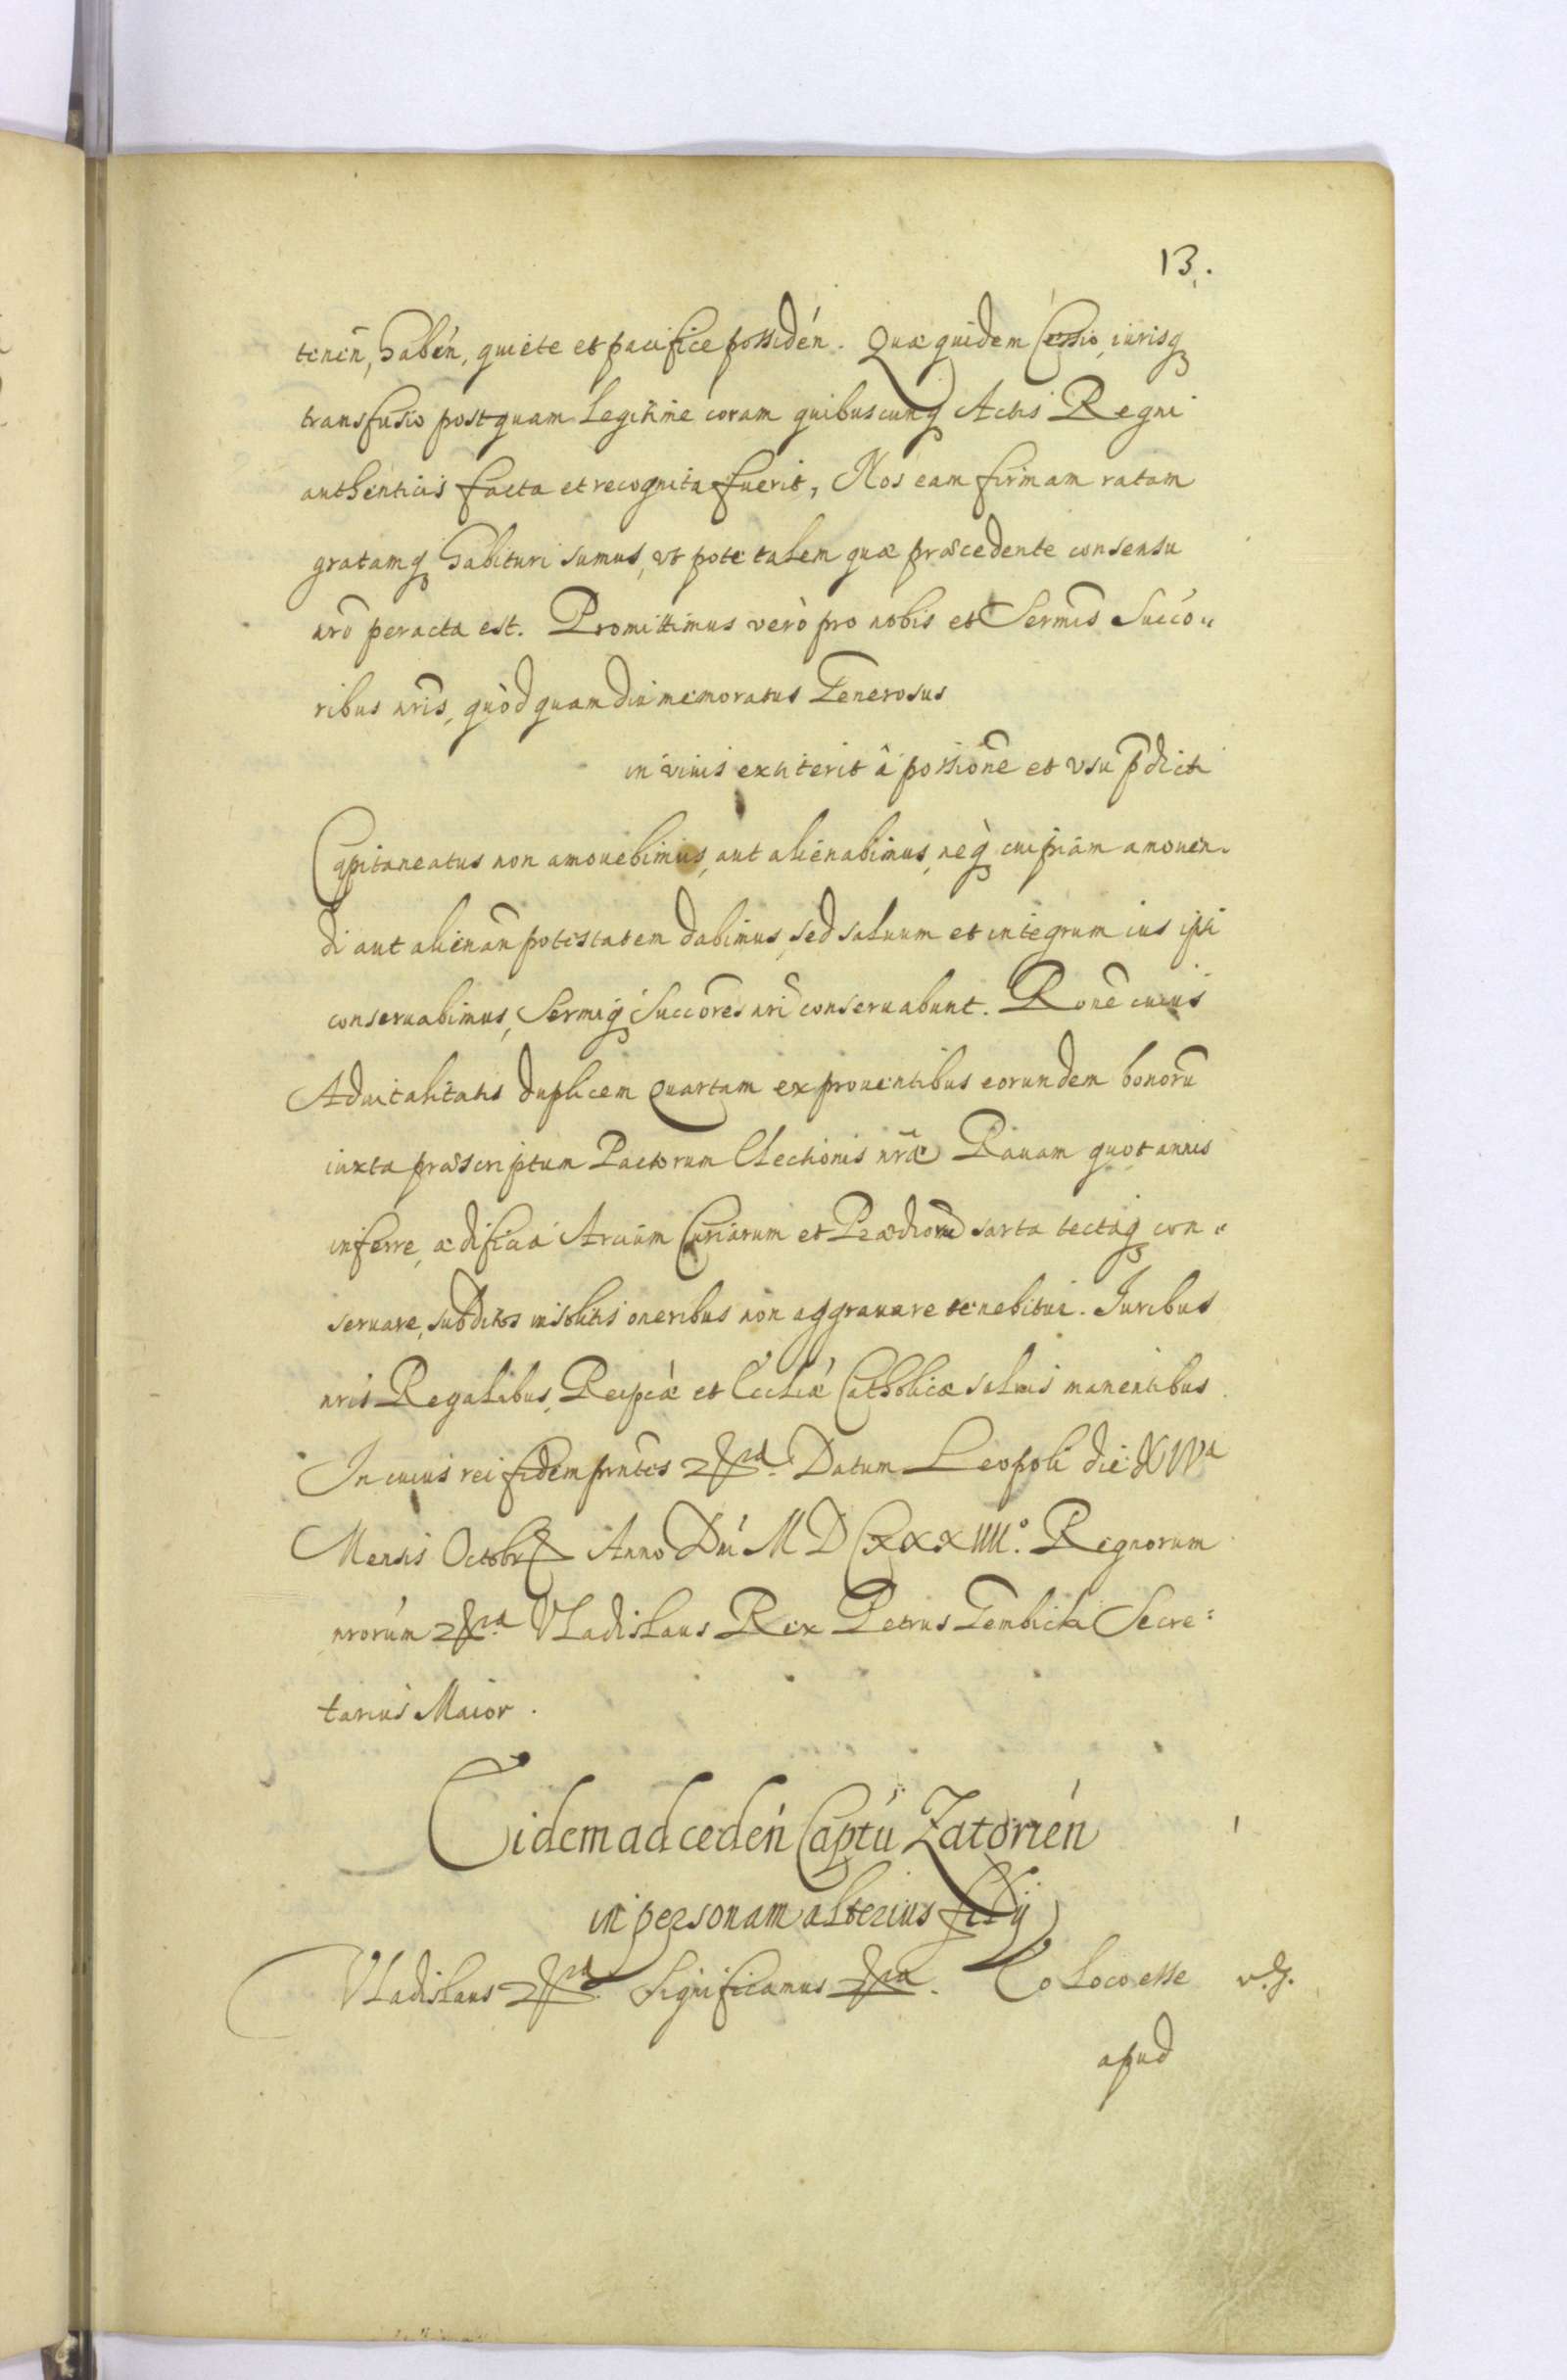 13.
tenen, haben, quiete et pacifice possiden. Quæ quidem Cessio, iurisq
transfusio postquam legitime coram quibuscunq Actis Regni
authenticis facta et recognita fuerit, Nos eam firmam ratam
gratamq habituri sumus, vt pote talem quæ præcedente consensu
nrō peracta est. Promittimus verò pro nobis et Sermis Succo„
ribus nris, quòd quamdiu memoratus Generosus
in viuis extiterit â possione et vsu pdicti
Capitaneatus non amouebimus, aut alienabimus, neq cuipiam amouen„
di aut alienan potestatem dabimus, sed saluum et integrum ius ipsi
conseruabimus, Sermiq Succores nri conseruabunt. Rone cuius
Aduitalitatis duplicem Quartam ex prouentibus eorundem bonorū
iuxta præscriptum Pactorum Electionis nræ Rauam quotannis
inferre, ædificia Arcium Curiarum et Prædiorū sarta tectaq con„
seruare, subditos insolitis oneribus non aggrauare tenebitur. Iuribus
nris Regalibus, Reipcæ et Eccliæ Catholicæ saluis manentibus.
In cuius rei fidem prntes Datum Leopoli die
Mensis Octobr Anno Dni MDCXXXIIII.° Regnorum
nrorum Vladislaus Rex Petrus Gembicki Secre:
tarius Maior.
Eidem ad ceden Captū Zatorien
in personam alterius filij
Vladislaus Significamus Eo loco esse
apud